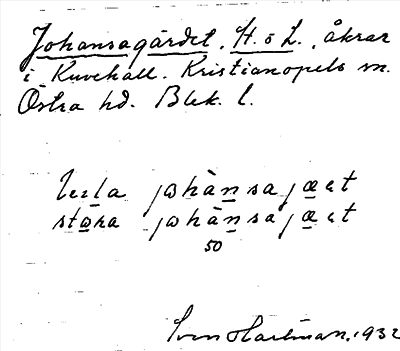 Johansagärdet, H. o L., åkrar
i Kuvehall. Kristianopels sn.
Östra hd. Blek. l.
lilla johànsajæet
stora johànsajæet
50
Sven Hartman, 1932